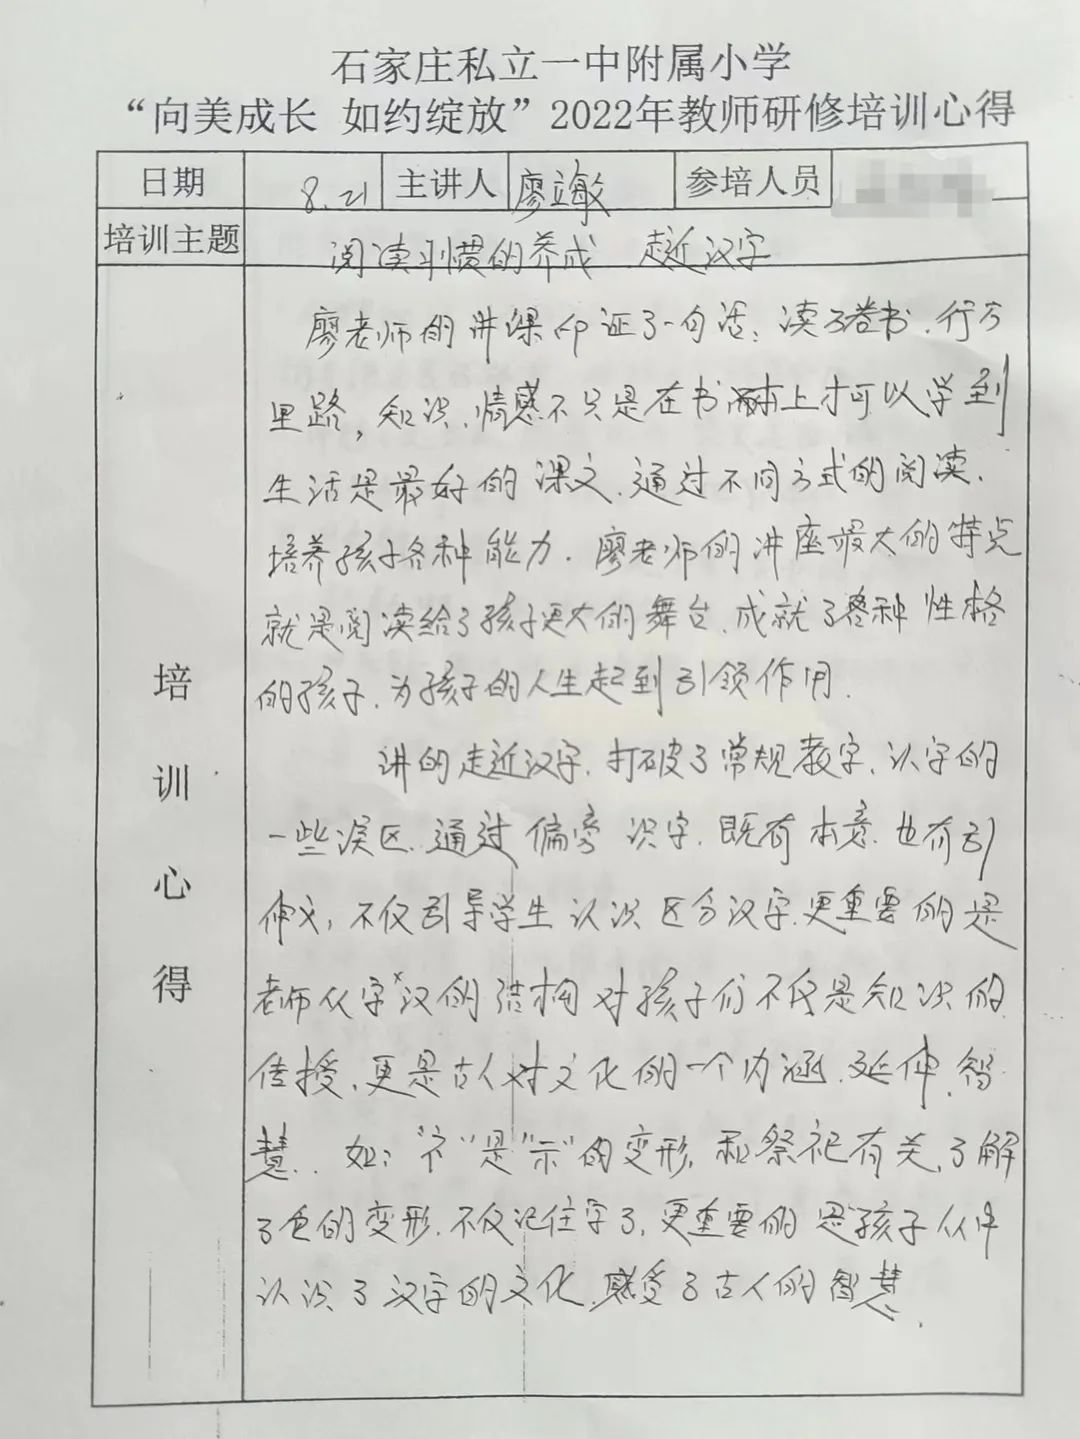 石家庄私立一中附属小学
“向美成长 如约绽放”2022年教师研修培训心得
日期 8.21 主讲人 廖立敏 参培人员
培训主题 阅读习惯的养成 走近汉字
培训心得
廖老师的讲课印证了一句话：读万卷书、行万
里路，知识、情感不只是在书本上才可以学到
生活是最好的课文、通过不同方式的阅读、
培养孩子各种能力。廖老师的讲座最大的特点
就是阅读给了孩子更大的舞台、成就了各种性格
的孩子、为孩子的人生起到引领作用.
讲的走近汉字、打破了常规教字、认字的
一些误区、通过偏旁识字、既有本意、也有引
伸义，不仅引导学生认识区分汉字、更重要的是
老师从字汉的结构对孩子们不仅是知识的
传授、更是古人对文化的一个内涵、延伸、智
慧.. 如："礻"是"示"的变形，和祭祀有关、了解
了它的变形、不仅记住字了、更重要的是孩子从中
认识了汉字的文化、感受了古人的智慧.